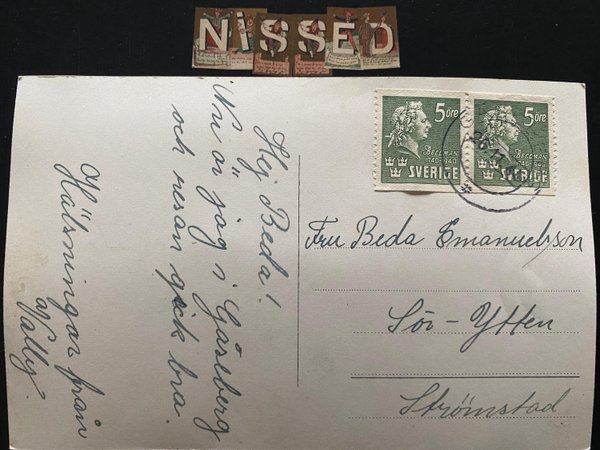 NiSSED
Hej Beda!
Nu är jag i
och resan gick bra.
Hälsningar från
Vally.
5 öre
BELLMAN
1740-1940
SVERIGE
5 öre
SVERIGE
Fru Beda Emanuelsson
Strömstad